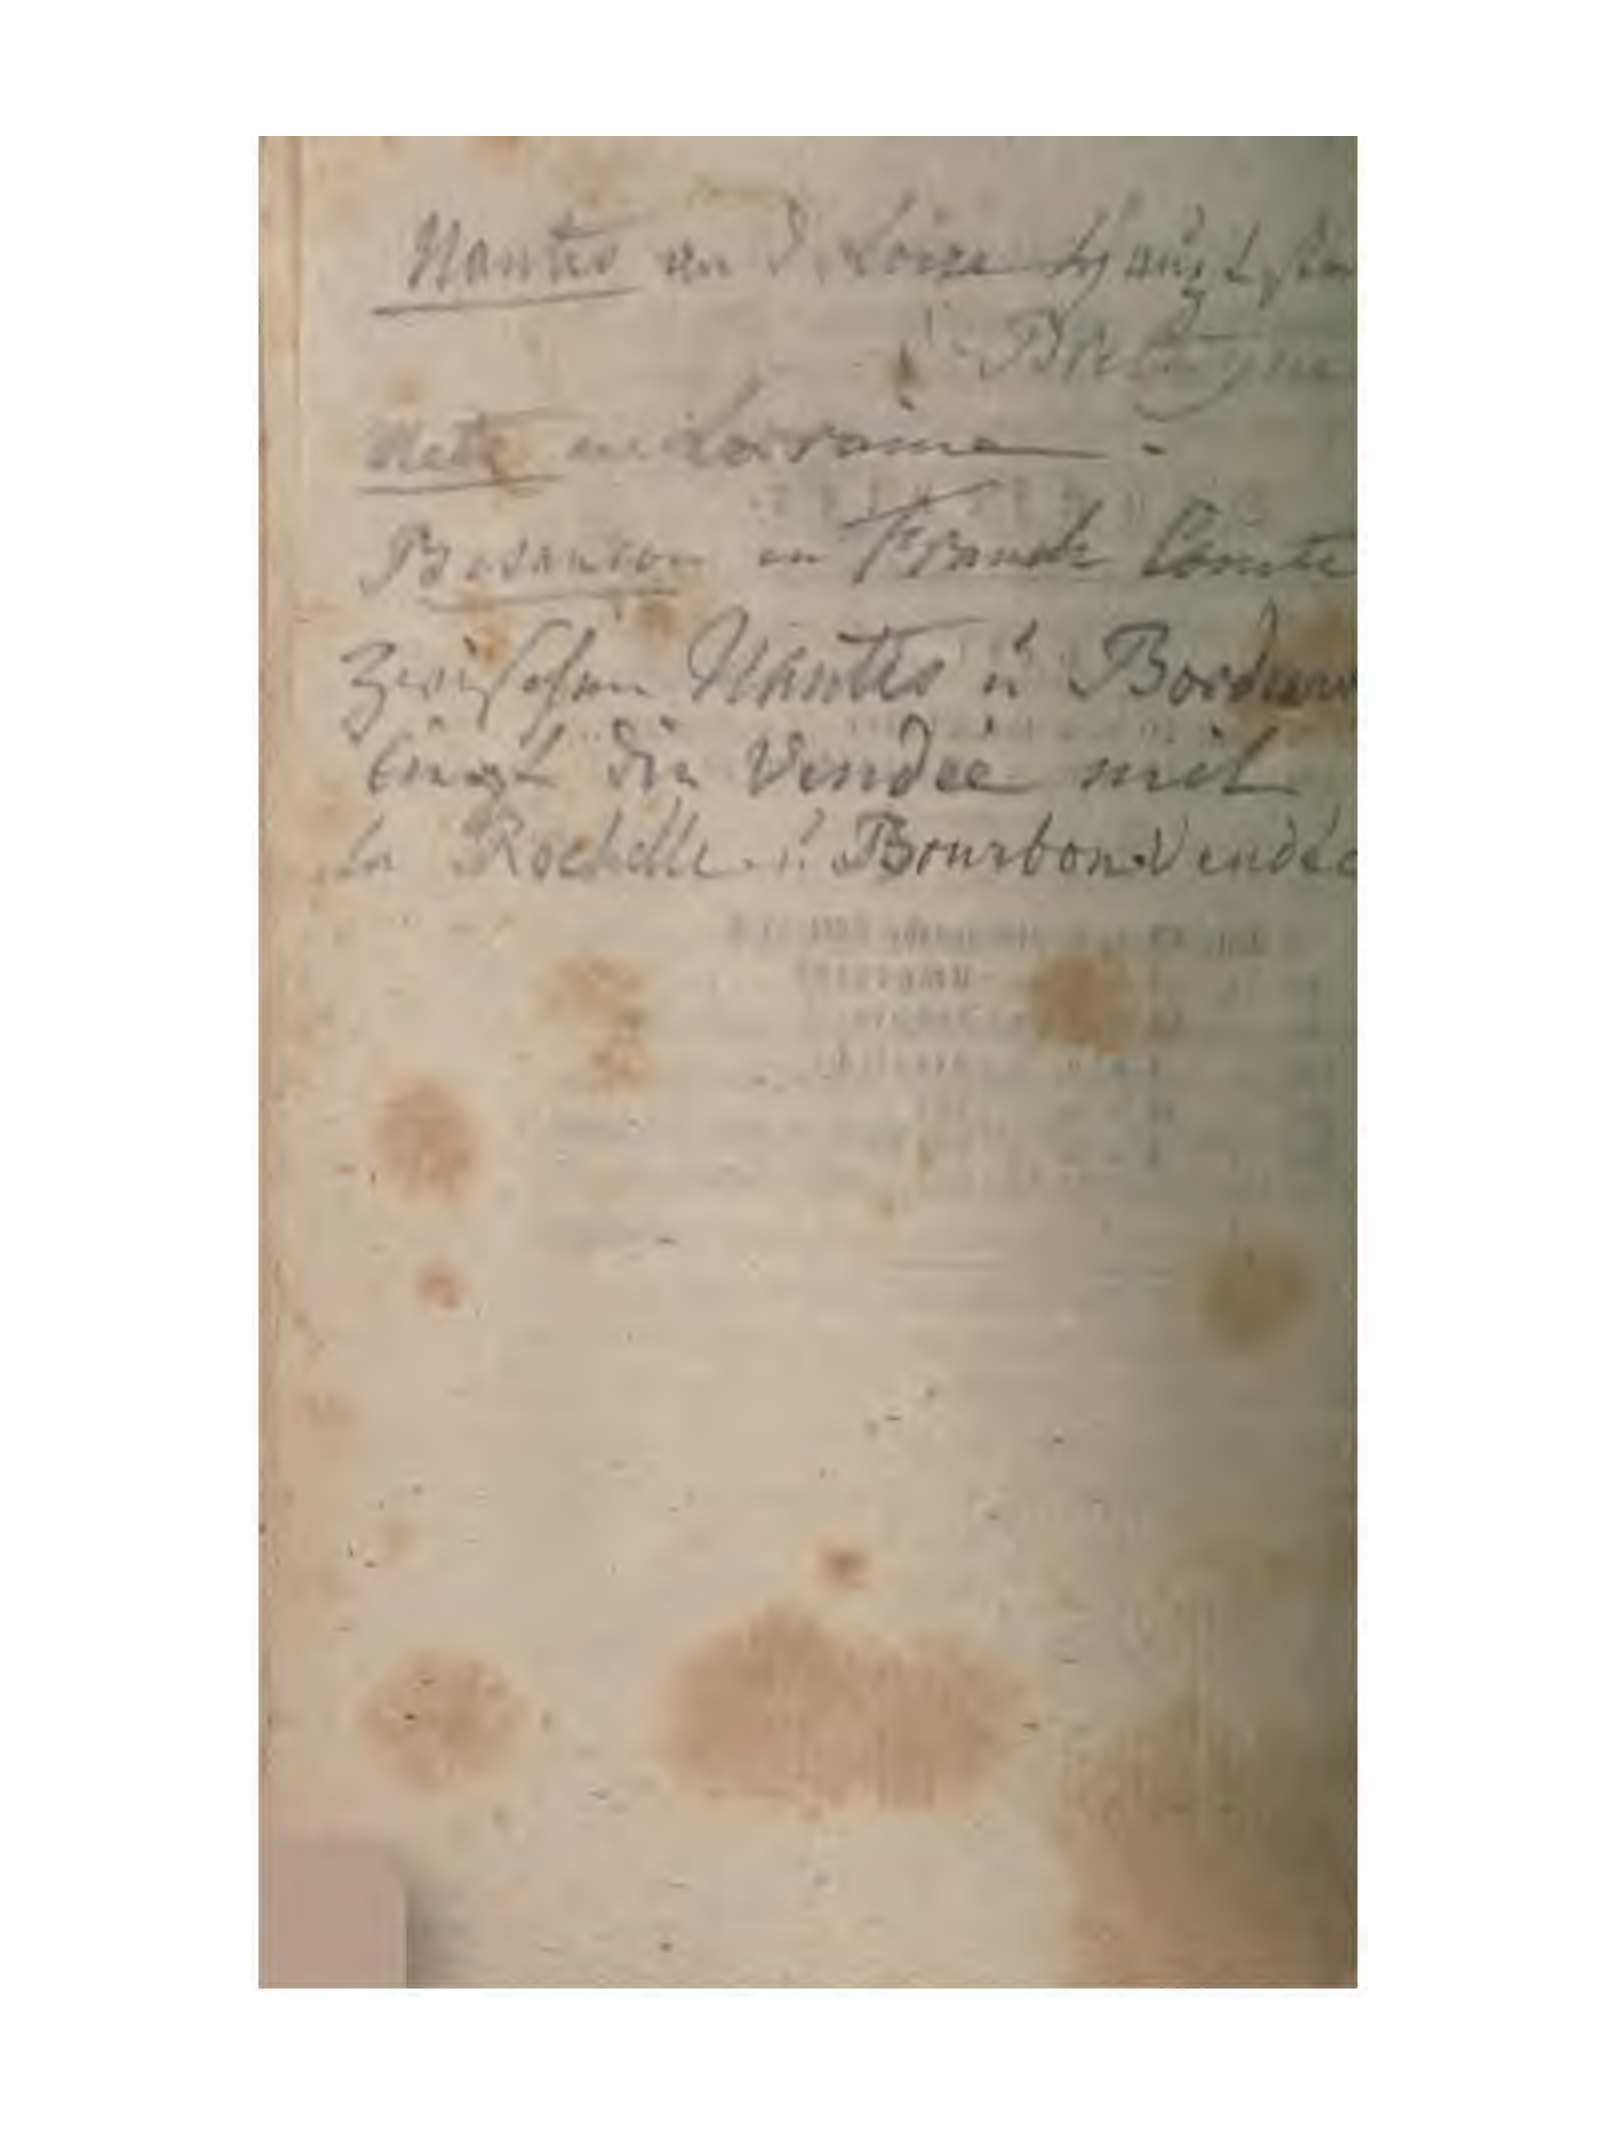 Nantes an d. Loire
Bretagne
Metz en Lorraine
Besancon en Franche Comte
Zwischen Nantes u Bordeaux
liegt die Vendee mit
la Rochelle u Bourbon Vendée